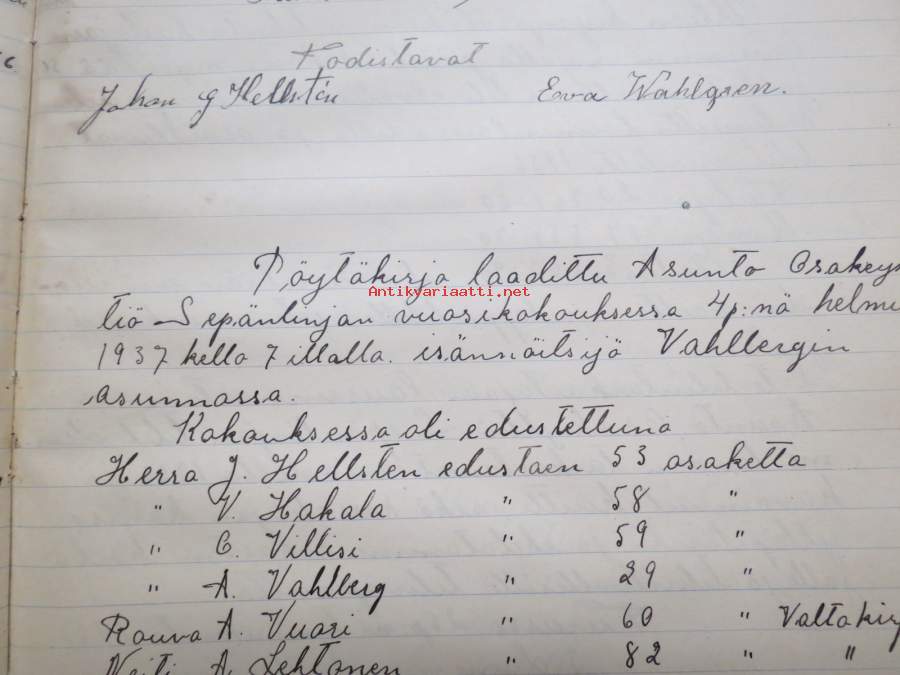 Todistavat
Johan G Hellstén Eva Wahlgren.
Pöytäkirja laadittu Asunto Osakeyh
Antikvariaatti.net
tiö Sepänlinjan vuosikokouksessa 4p:nä helmi
1937 kello 7 illalla. isännöitsijä Vahlbergin
asunnossa.
Kokouksessa oli edustettuna
Herra J. Hellsten edustaen 53 osaketta
" V. Hakala " 58 "
" C. Villisi " 59 "
" A. Vahlberg " 29 "
Rouva A. Vuori " 60 " Valtakirj
Neiti A. Lehtonen " 82 " "